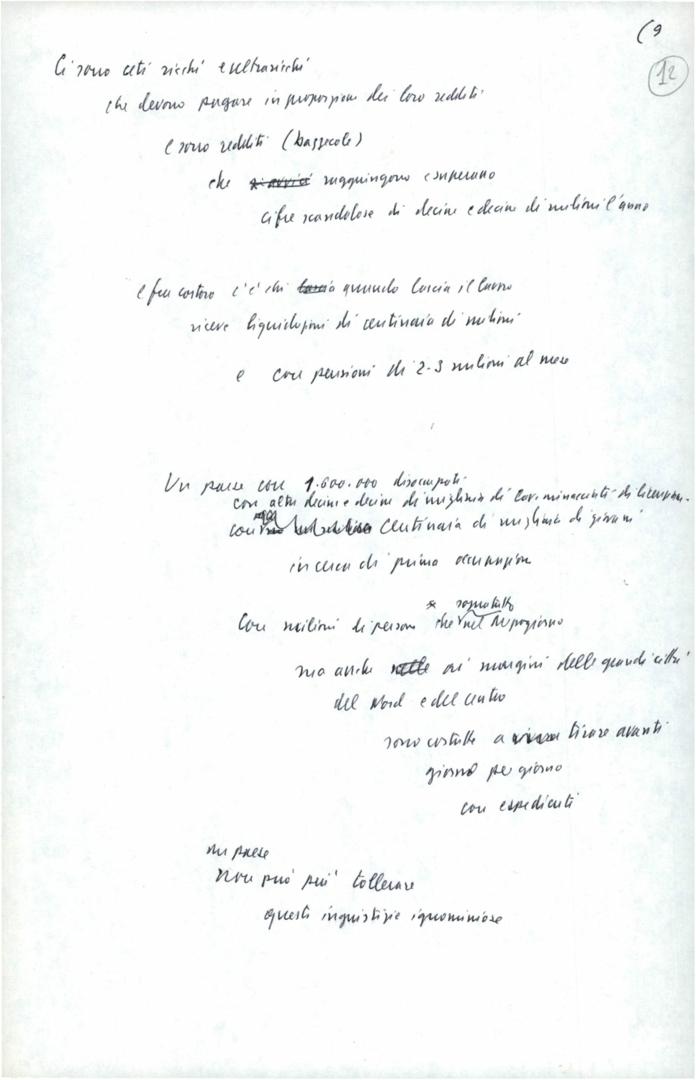 (9
12
Ci sono ceti ricchi e ultraricchi
che devono pagare in proporzione dei loro redditi
E sono redditi (bazzecole)
che raggiungono e superano
cifre scandalose di decine e decine di milioni l'anno
E fra costoro c'è chi quando lascia il lavoro
riceve liquidazioni di centinaia di milioni
e con pensioni di 2-3 milioni al mese
Un paese con 1.600.000 disoccupati
con altre decine e decine di migliaia di lav. minacciati di licenziam.
con centinaia di migliaia di giovani
in cerca di prima occupazione
soprattutto
Con milioni di persone che nel Mezzogiorno
ma anche ai margini delle grandi città
del Nord e del centro
sono costrette a tirare avanti
giorno per giorno
con espedienti
un paese
Non può più tollerare
queste ingiustizie ignominiose